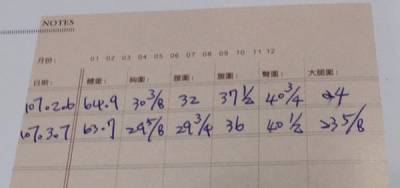 NOTES
月份: 01 02 03 04 05 06 07 08 09 10 11 12
日期: 體重: 胸圍: 腰圍: 腹圍: 臀圍: 大腿圍:
107.2.6 64.9 30 3/8 32 37 1/2 40 3/4 24
107.3.7 63.7 29 5/8 29 3/4 36 40 1/2 23 5/8